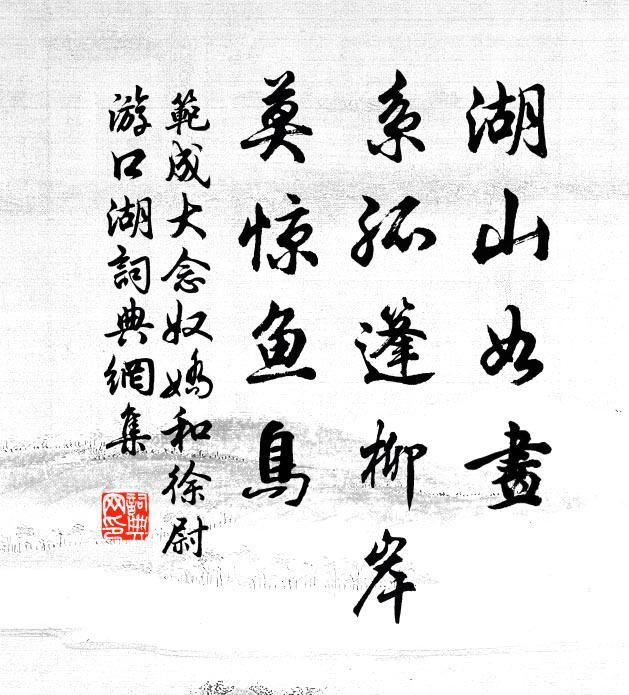 湖山如畫
系孤篷柳岸
莫惊鱼鳥
範成大念奴嬌和徐尉
游口湖詞典網集
詞典
网印